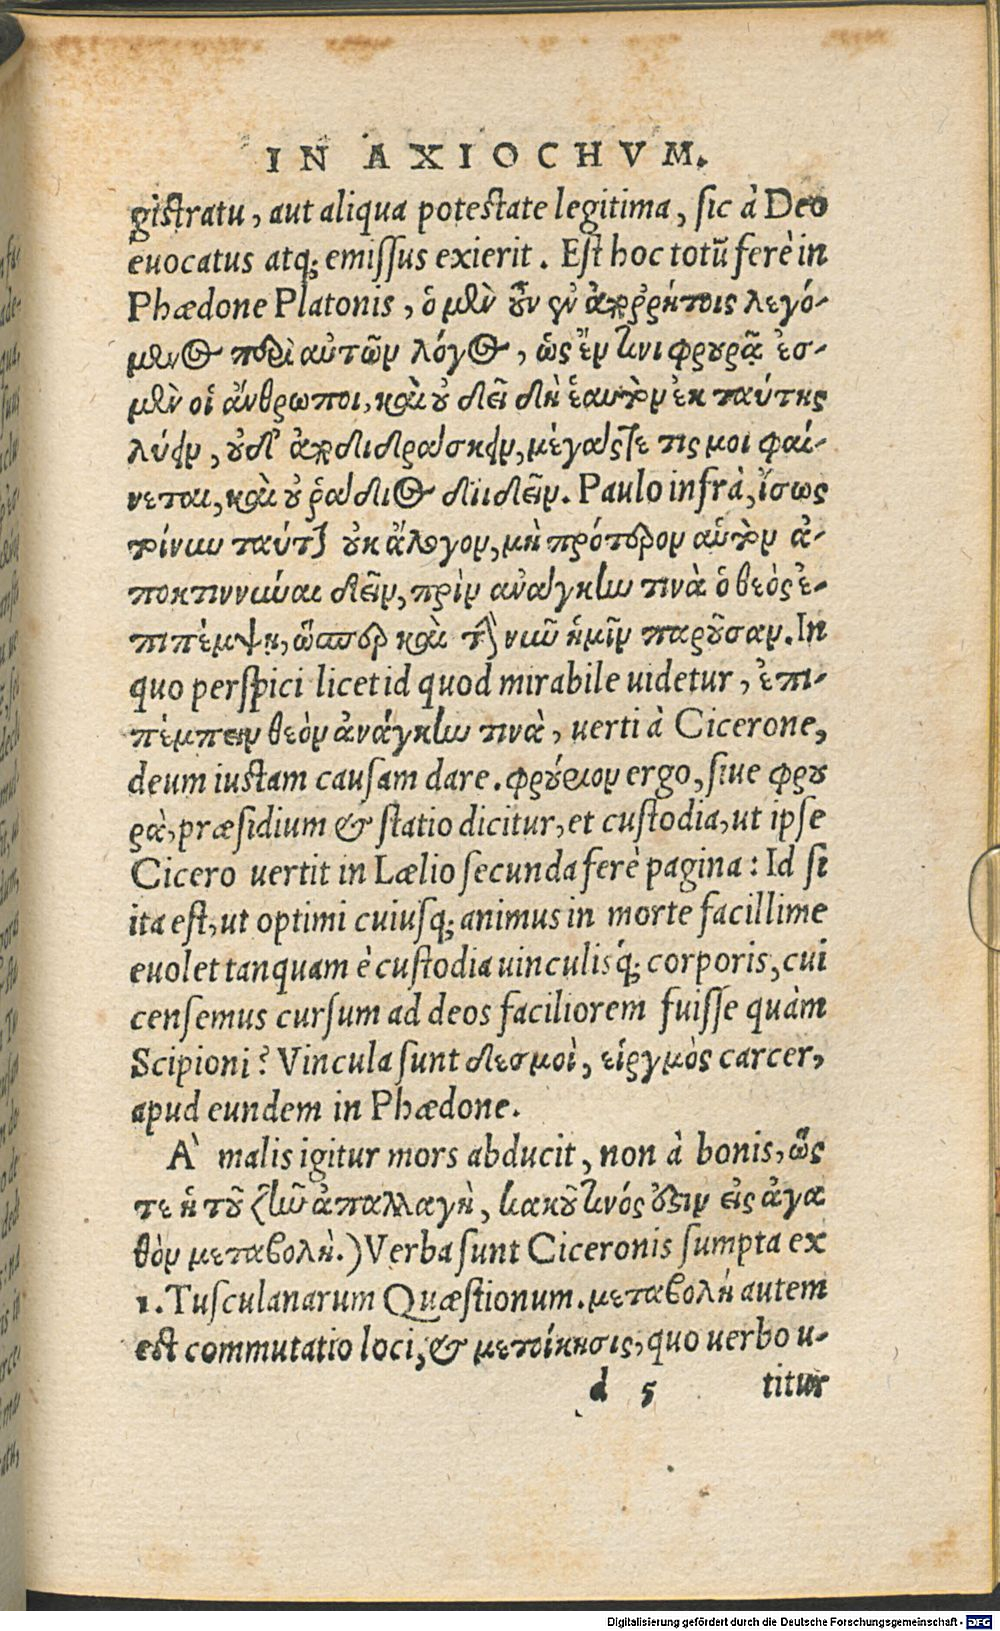 IN AXIOCHVM.
gistratu, aut aliqua potestate legitima, sic à Deo
euocatus atq; emissus exierit. Est hoc totũ ferè in
Phædone Platonis, ὁ μὲν οὖν ἐν ἀπορρήτοις λεγό-
μενος περὶ αὐτῶν λόγος, ὡς ἔν τινι φρουρᾷ ἐσ-
μὲν οἱ ἄνθρωποι, καὶ οὐ δεῖ δὴ ἑαυτὸν ἐκ ταύτης
λύειν, οὐδ' ἀποδιδράσκειν, μέγας τέ τις μοι φαί-
νεται, καὶ οὐ ῥᾴδιος διιδεῖν. Paulo infrà, ἴσως
τοίνυν ταύτῃ οὐκ ἄλογον, μὴ πρότερον αὑτὸν ἀ-
ποκτιννύναι δεῖν, πρὶν ἀνάγκην τινὰ ὁ θεὸς ἐ-
πιπέμψῃ, ὥσπερ καὶ τὴν νῦν ἡμῖν παροῦσαν. In
quo perspici licet id quod mirabile uidetur, ἐπι-
πέμπειν θεὸν ἀνάγκην τινὰ, uerti à Cicerone,
deum iustam causam dare. φρούριον ergo, siue φρου
ρὰ, præsidium & statio dicitur, et custodia, ut ipse
Cicero uertit in Lælio secunda ferè pagina: Id si
ita est, ut optimi cuiusq; animus in morte facillime
euolet tanquam è custodia uinculisq́; corporis, cui
censemus cursum ad deos faciliorem fuisse quàm
Scipioni? Vincula sunt δεσμοὶ, εἱργμὸς carcer,
apud eundem in Phædone.
À malis igitur mors abducit, non à bonis, ὥς
τε ἡ τοῦ ζῆν ἀπαλλαγὴ, κακοῦ τινός ὅξιν εἰς ἀγα
θὸν μεταβολὴ.) Verba sunt Ciceronis sumpta ex
1. Tusculanarum Quæstionum. μεταβολή autem
est commutatio loci, & μετοίκησις, quo uerbo u-
d 5 titur
Digitalisierung gefördert durch die Deutsche Forschungsgemeinschaft - DFG